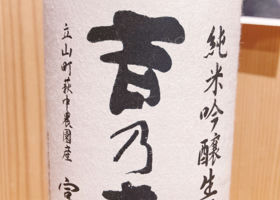 純米吟醸生
吉乃
立山町萩中農園産